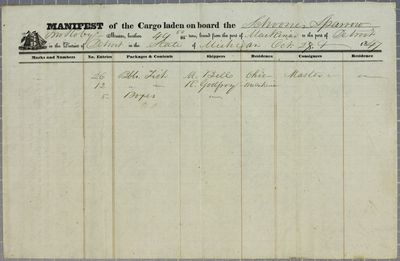 MANIFEST of the Cargo laden on board the Schooner Sparrow
Wm Roby Master, burthen 49 00/95 tons, bound from the port of Mackinac to the port of Detroit
in the District of Detroit in the State of Michigan Oct 28th 1847
Marks and Numbers No. Entries Packages & Contents Shippers Residence Consignees Residence
26 Bbls. Fish A. Bell Ohio Master "
12 " " R. Godfroy Mackinac
5 Boxes "